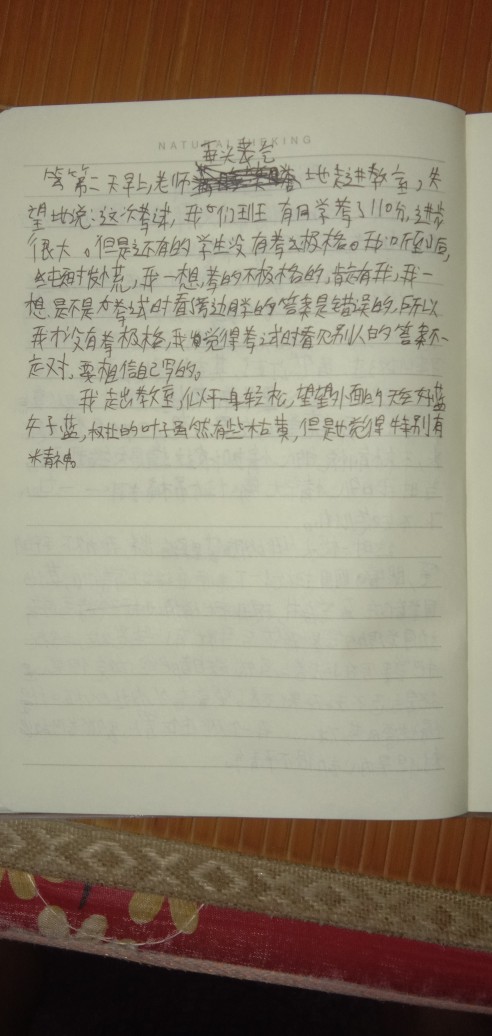 NATURAL THINKING
垂头丧气
等第二天早上,老师地走进教室,失
望地说:这次考试,我们班有同学考了110分,进步
很大。但是还有的学生没有考及极格。我听到后,
时发慌,我一想,考的不极格的,肯定有我,我一
想是不是考试时看旁边同学的答案是错误的,所以
我才没有考极格,我觉得考试时看见别人的答案不一
定对,要相信自己写的。
我走出教室,似乎一身轻松,望望外面的天空好蓝
好蓝,树上的叶子虽然有些枯黄,但是也觉得特别有
精神。